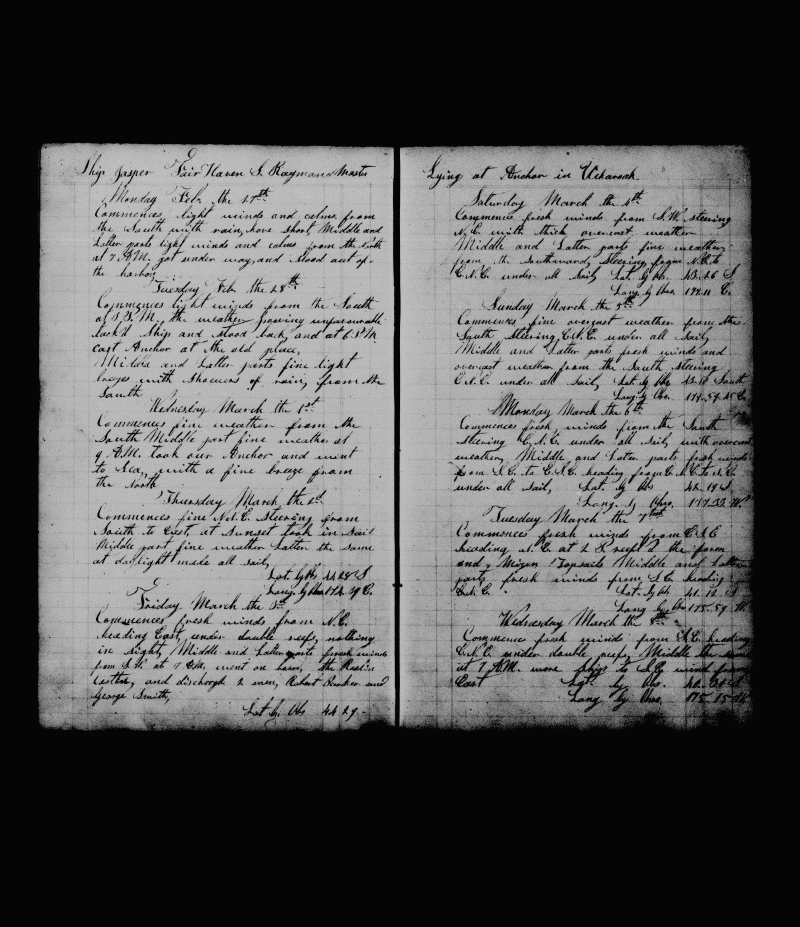 Ship Jasper Fair Haven S. Raymond Master
Monday Feb. the 27th
Commences light winds and calms from
the South with rain, hove short, Middle and
Latter parts light winds and calms from the
at 7 A.M. got under way, and stood out of
the harbor
Tuesday Feb. the 28th
Commences light winds from the South
at P.M. the weather unfavourable
tack'd Ship and stood back, and at 6 P.M.
cast Anchor at the old place,
Middle and Latter parts fine light
breezes with showers of rain, from the
South
Wednesday March the 1st
Commences fine weather from the
South Middle part fine weather at
9 A.M. took our Anchor and went
to Sea, with a fine breeze from
the North
Thursday March the 2d
Commences fine N.N.E. Steering from
South to East, at Sunset took in sail
Middle part fine weather Latter the same
at daylight made all sail,
Lat. by Obs 44.28 S
Long. by Chro 172.39 E.
Friday March the 3d
Commences fresh winds from N.E.
heading East, under double reefs, nothing
in sight, Middle and Latter parts fresh winds
from at A.M. went on
and discharged 2 men, Robert and
George Smith,
Lat by Obs 44.29
Lying at Anchor in
Saturday March the 4th
Commences fresh winds from S.W. steering
N.E. with thick overcast weather
Middle and Latter parts fine weather,
from the Southward, Steering from N.E. to
E.N.E. under all Sail, Lat. by Obs. 43.26 S
Long. by Chro. E.
Sunday March the 5th
Commences fine overcast weather from the
South Steering E.N.E. under all Sail,
Middle and Latter parts fresh winds and
overcast weather from the South Steering
E.N.E. under all Sail, Lat by Obs South
Long. by Chro. E.
Monday March the 6th
Commences fresh winds from the South
Steering E.N.E. under all Sail with overcast
weather, Middle and Latter parts fresh winds
from S.E. to E.S.E. heading from E.N.E. to N.E.
under all Sail, Lat. by Obs 42.19 S
Long. by Chro. 177.33 W.
Tuesday March the 7th
Commences fresh winds from E.S.E
heading N.E. at 2 P reef'd the fore
and Mizen Topsails Middle and Latter
parts fresh winds from S.E. heading
E.N.E. Lat. by Obs. 41.12 S
Long by Chro 175.59 W.
Wednesday March the 8th
Commences fresh winds from S.E. heading
E.N.E. under double reefs, Middle the same
at A.M. wore ship to S.E. wind from
East Lat. by Obs. S
Long by Chro. 175.15 W